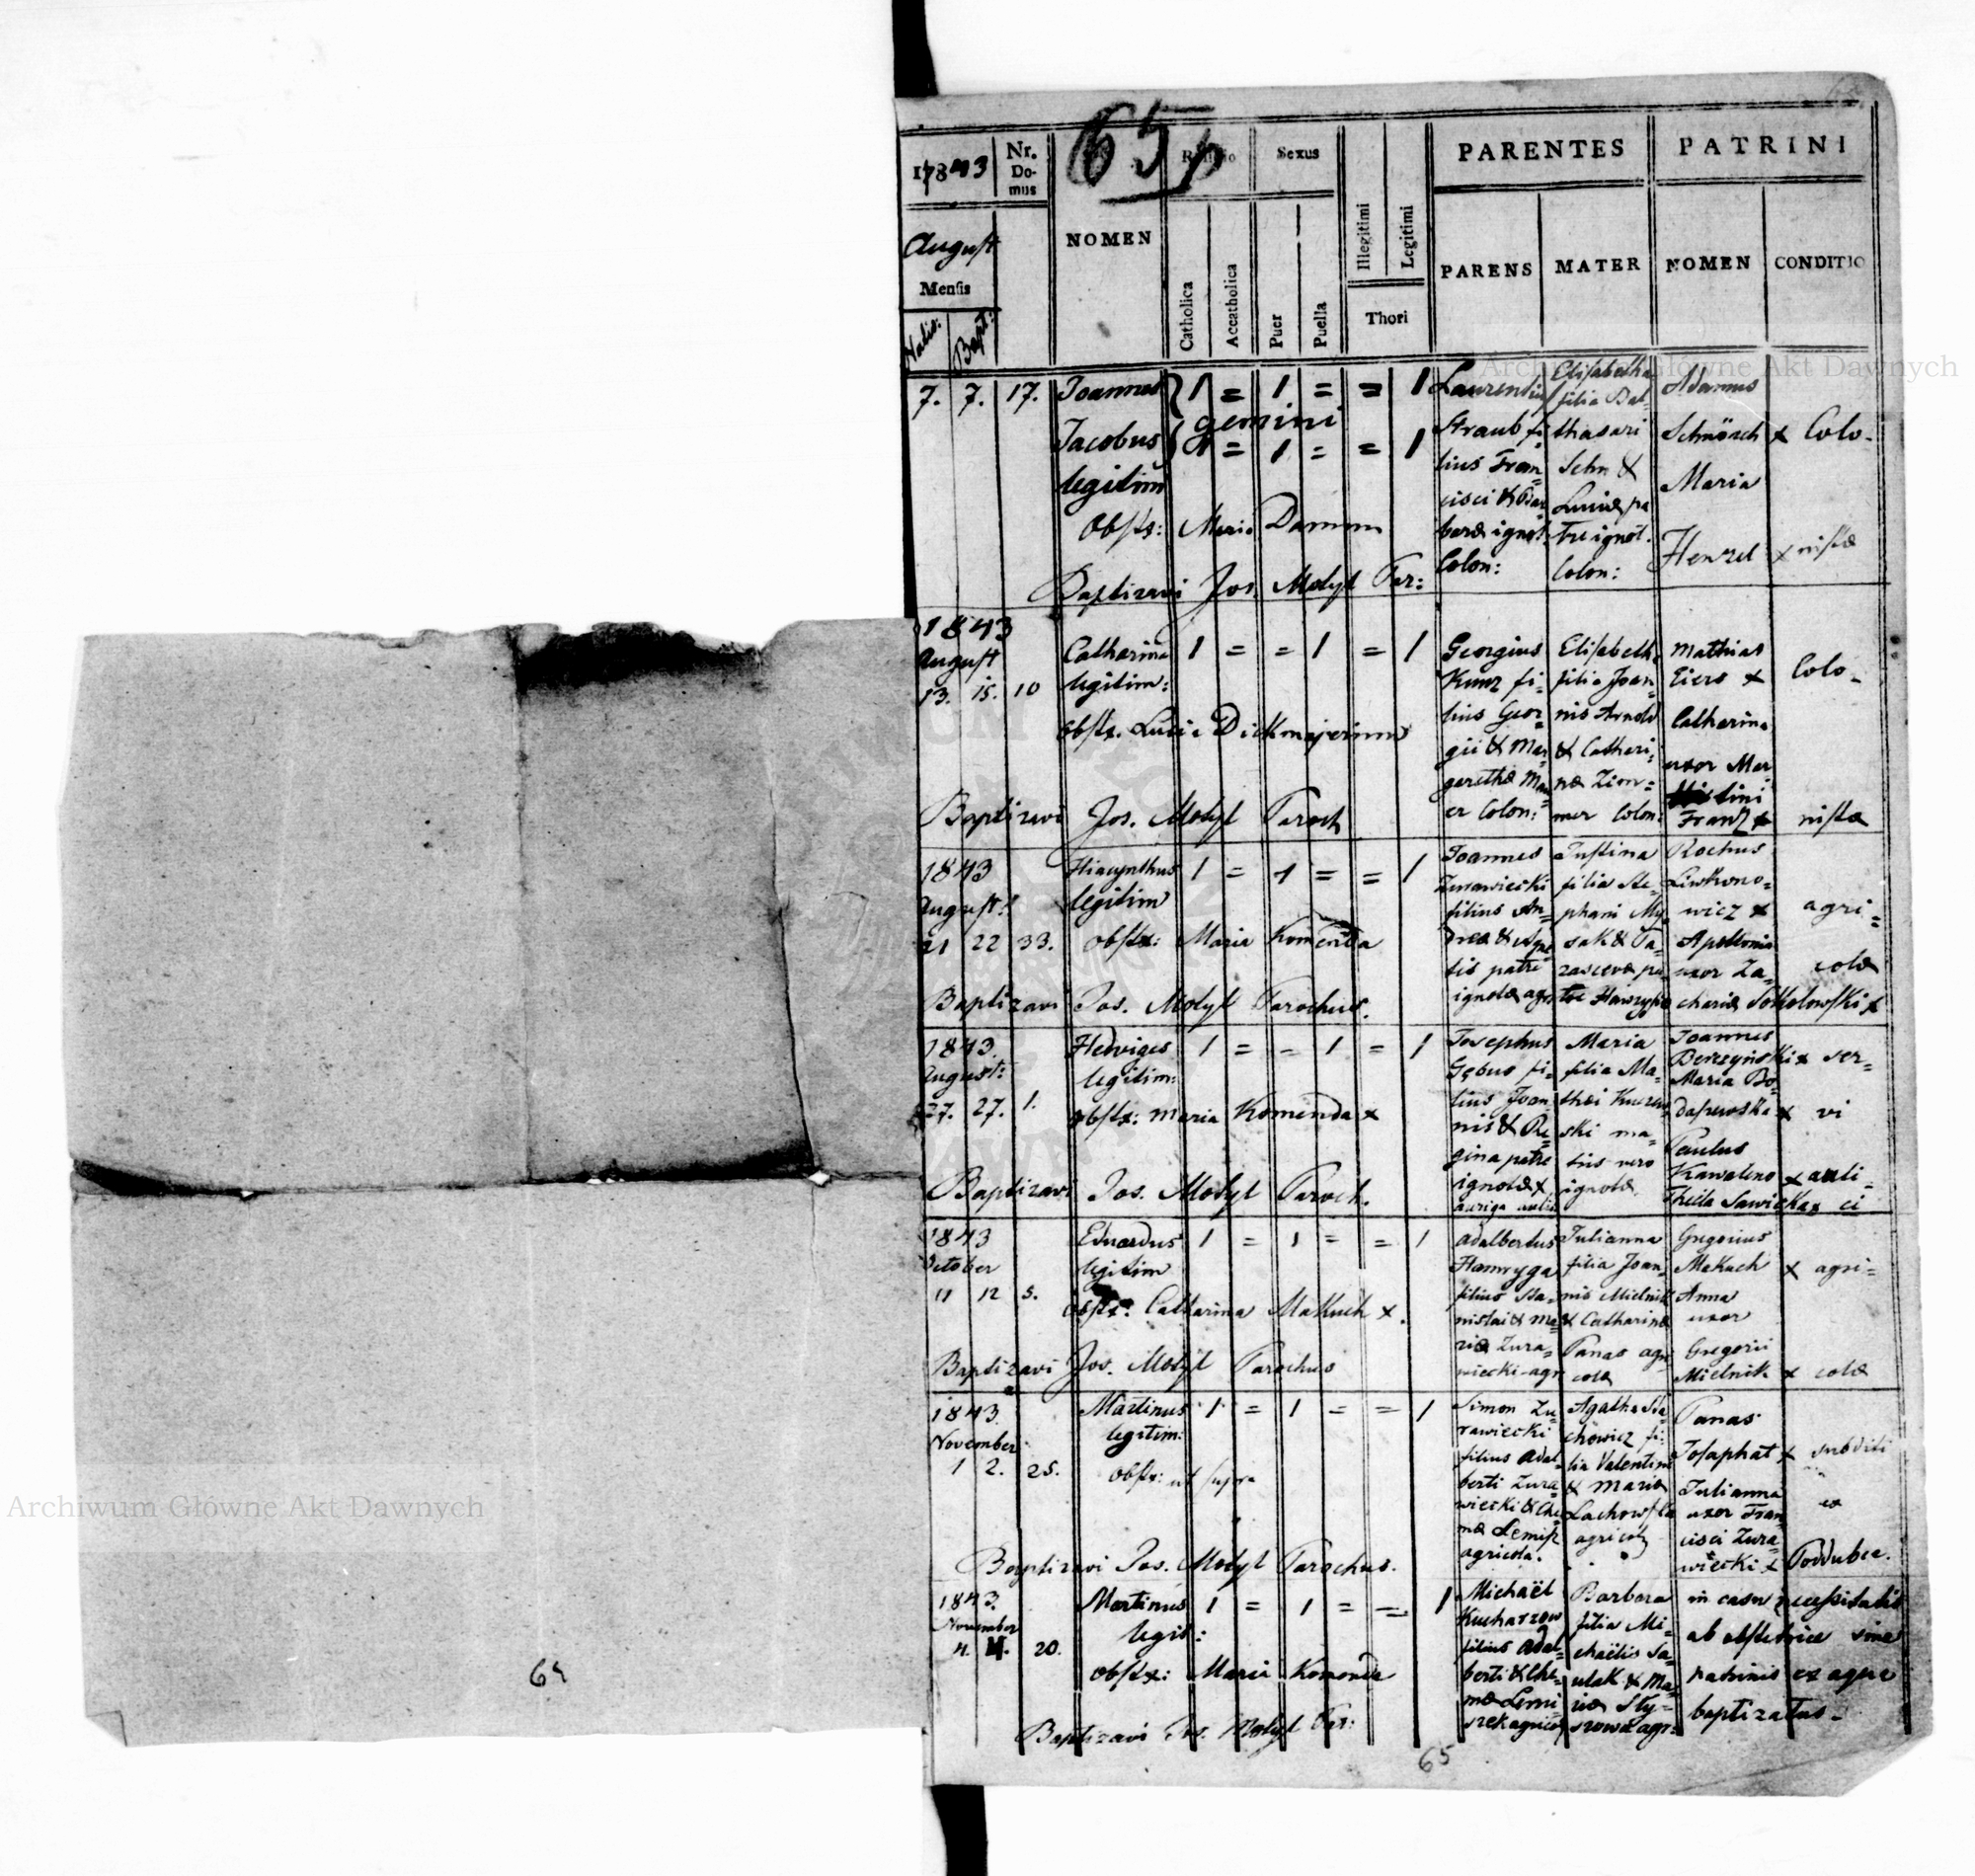 65
17843
Nr. Domus
Religio
Sexus
PARENTES
PATRINI
August
Mensis
Natio: Bapt:
NOMEN
Catholica
Accatholica
Puer
Puella
Illegitimi
Legitimi
Thori
PARENS
MATER
NOMEN
CONDITIO
7. 7. 17. Joannes 1 = 1 = = 1
gemini
Jacobus 1 = 1 = = 1
legitim
Obstx: Maria Damm
Baptizavi Jos. Motyl Par:
Laurentius
Straub fi=
lius Fran=
cisci & Bar
bara ignot.
Colon:
Elisabetha
filia Bal=
thasari
Sehn &
Lucia pa
tre ignot.
Colon:
Adamus
Schnörch x Colo-
Maria
Henzel x nistæ
1843
August
13. 15. 10 Catharina 1 = = 1 = 1
legitim:
obstx. Lucia Dickmajerinn
Baptizavi Jos. Motyl Paroch
Georgius
Kunz fi=
lius Geor=
gii & Mar
garethæ Mau
er Colon:
Elisabeth
filia Joan=
nis Arnold
& Catheri=
næ Zim=
mer Colon:
Mathias
Eiers x Colo-
Catharina
uxor Mar
tini
Franz x nistæ
1843
August:
21 22 33. Hiacynthus 1 = 1 = = 1
legitim
obstx: Maria Komenda
Baptizavi Jos. Motyl Parochus.
Joannes
Zurawiecki
filius An=
dreæ & Agne
tis patre
ignotæ agr
Justina
filia Ste=
phani My
sak & Pa=
rascevæ pa
tre Hawryga
Rochus
wicz x agri=
Apollonia
uxor Za= colæ
chariæ Sokolowski x
1843.
August:
27. 27. 1. Hedviges 1 = = 1 = 1
legitim:
obstx: Maria Komenda x
Baptizavi Jos. Motyl Paroch.
Josephus
Gębus fi=
lius Joan=
nis & Re=
gina patre
ignotæ x
auriga aulic
Maria
filia Ma=
thæi
ski ma=
tris vero
ignotæ.
Joannes
Berezyński x ser=
Maria Bo=
x vi
Paulus
Kawaleno x auli-
Thecla Sawicka x ci
1843
October
11 12 5. Eduardus 1 = 1 = = 1
legitim
obstx: Catharina Makuch x.
Baptizavi Jos. Motyl Parochus
Adalbertus
Hawryga
filius Sta=
nislai & Ma=
riæ Zura=
wiecki agr
Julianna
filia Joan=
nis Mielnik
& Catharinæ
Panas agri
colæ
Gregorius
Makuch x agri=
Anna
uxor
Gregorii
Mielnik x colæ
1843.
November
1 2. 25. Martinus 1 = 1 = = 1
legitim:
obstx: ut supra
Baptizavi Jos. Motyl Parochus.
Simon Zu=
rawiecki
filius Adal=
berti Zura=
wiecki & Che
mæ Lemisz
agricola.
Agatha Sta
chowicz fi=
lia Valentini
& Mariæ
Lachowska
agricolæ
Panas
Josaphat x subditi
Julianna
uxor Fran ex
cisci Zura=
wiecki x Poddubce.
1843.
November
4. 4. 20. Martinus 1 = 1 = = 1
legit:
obstx: Maria Komenda
Baptizavi Jos. Motyl Par:
Michaël
Kucharzow
filius Adal=
berti & Che=
mæ Lemi
szek agricolæ
Barbara
filia Mi=
chaëlis Sa=
ulak & Ma
riæ Sty=
srowa agr=
in casu necessitatis
ab obstetrice sine
patrinis ex aqua
baptizatus.
64
65
Archiwum Główne Akt Dawnych
Archiwum Główne Akt Dawnych